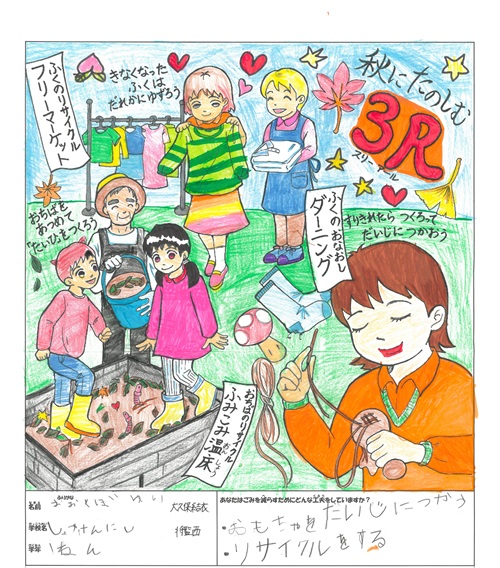 秋にたのしむ
3R
スリーアール
きなくなった
ふくは
だれかにゆずろう
ふくのリサイクル
フリーマーケット
おちばを
あつめて
「たいひ」をつくろう
ふくのおなおし
ダーニング
すりきれたら つくろって
だいじにつかおう
おちばのリサイクル
ふみこみ温床
おんしょう
名前
学校名
学年 1ねん
あなたはごみを減らすためにどんな工夫をしていますか?
・おもちゃをたいじにつかう
・リサイクルをする